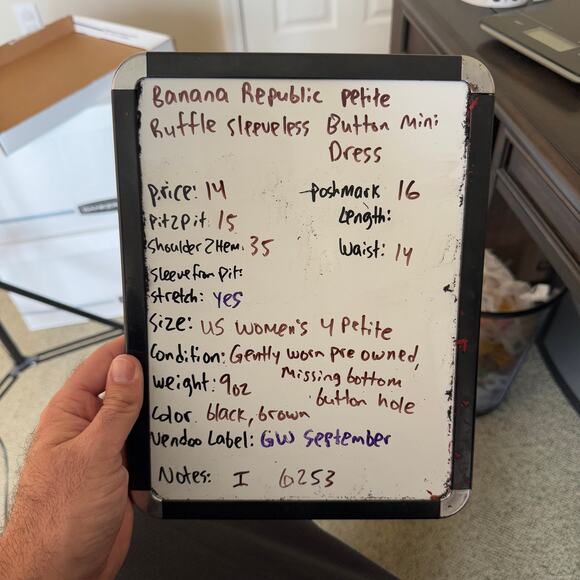 Banana Republic petite
Ruffle sleeveless Button Mini
Dress
Price: 14
Poshmark 16
Pit2Pit: 15
Length:
Shoulder2Hem: 35
Waist: 14
Sleeve from Pit:
Stretch: yes
Size: US women's 4 Petite
Condition: Gently worn pre owned,
missing bottom
button hole
Weight: 9oz
Color: black, brown
Vendoo Label: GW September
Notes: I 6253